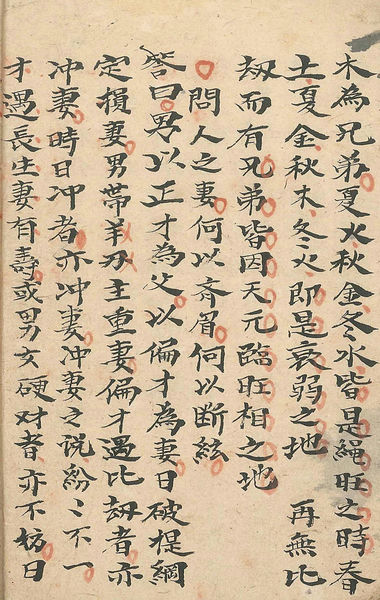 木為兄弟夏火秋金冬水皆是繩旺之時春
土夏金秋木冬火即是衰弱之地　再無比
刼而有兄弟皆因天元臨旺相之地
問人之妻何以齐眉何以断絃
答曰男以正才為父以偏才為妻日破提綱
定損妻男帶羊刃主重妻偏才遇比刼者亦
冲妻時日冲者亦冲妻冲妻之説紛〻不一
才遇長生妻有壽或男女硬对者亦不妨日